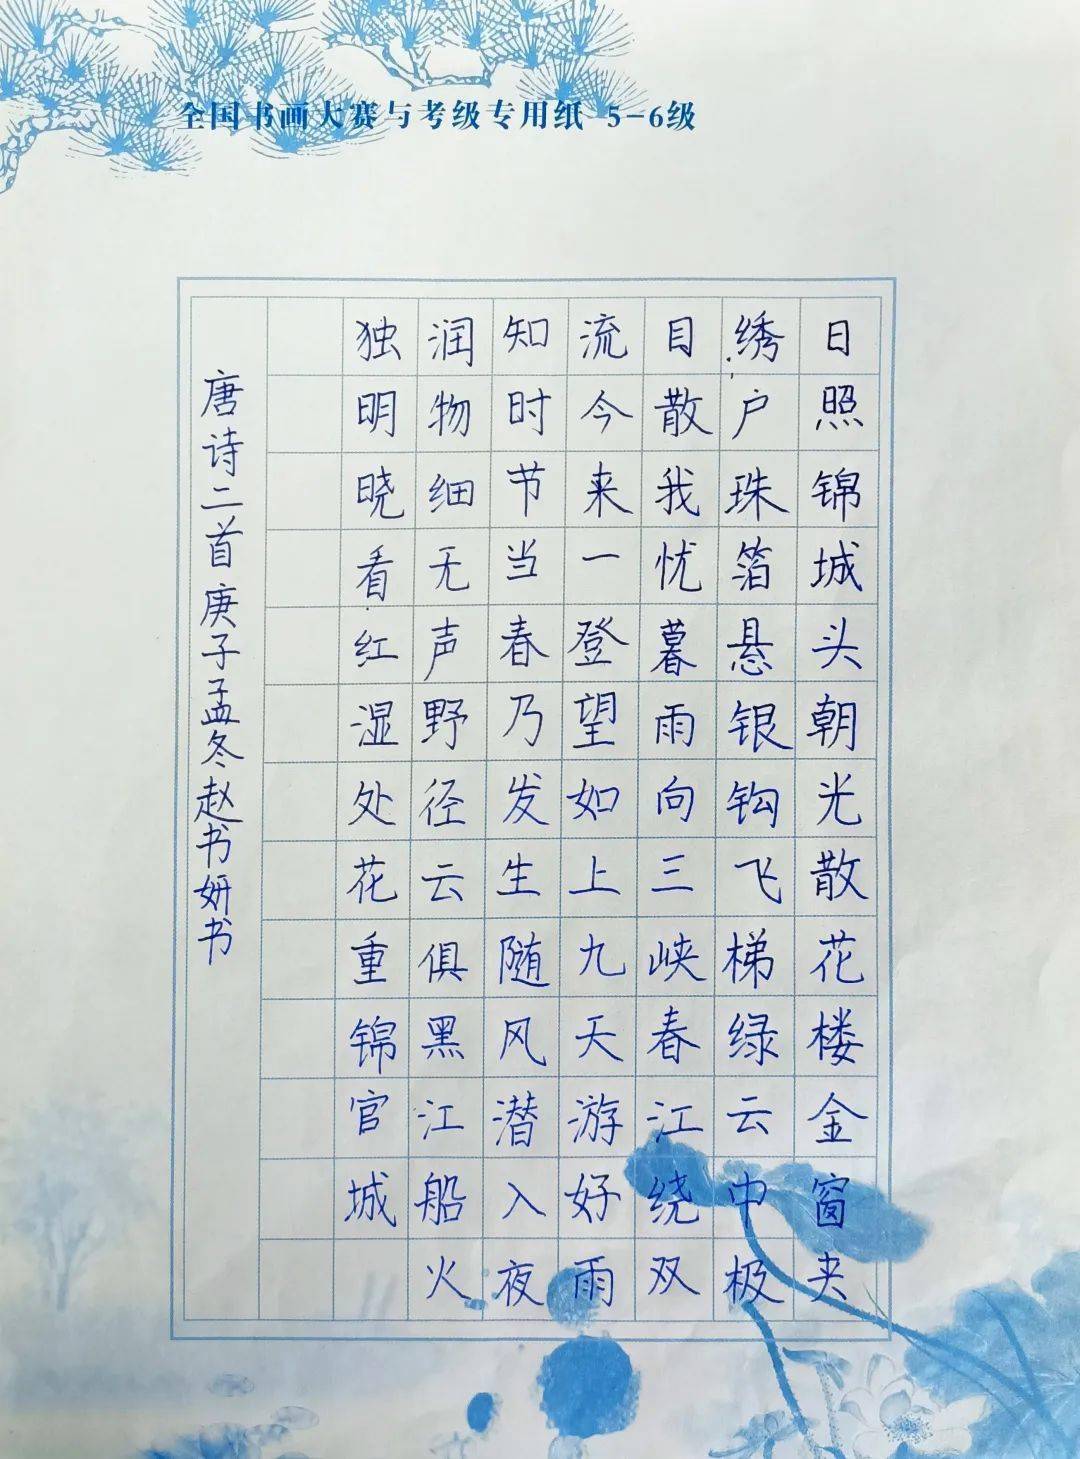 全国书画大赛与考级专用纸 5-6级
日照锦城头朝光散花楼金窗夹
绣户珠箔悬银钩飞梯绿云中极
目散我忧暮雨向三峡春江绕双
流今来一登望如上九天游好雨
知时节当春乃发生随风潜入夜
润物细无声野径云俱黑江船火
独明晓看红湿处花重锦官城
唐诗二首庚子孟冬赵书妍书